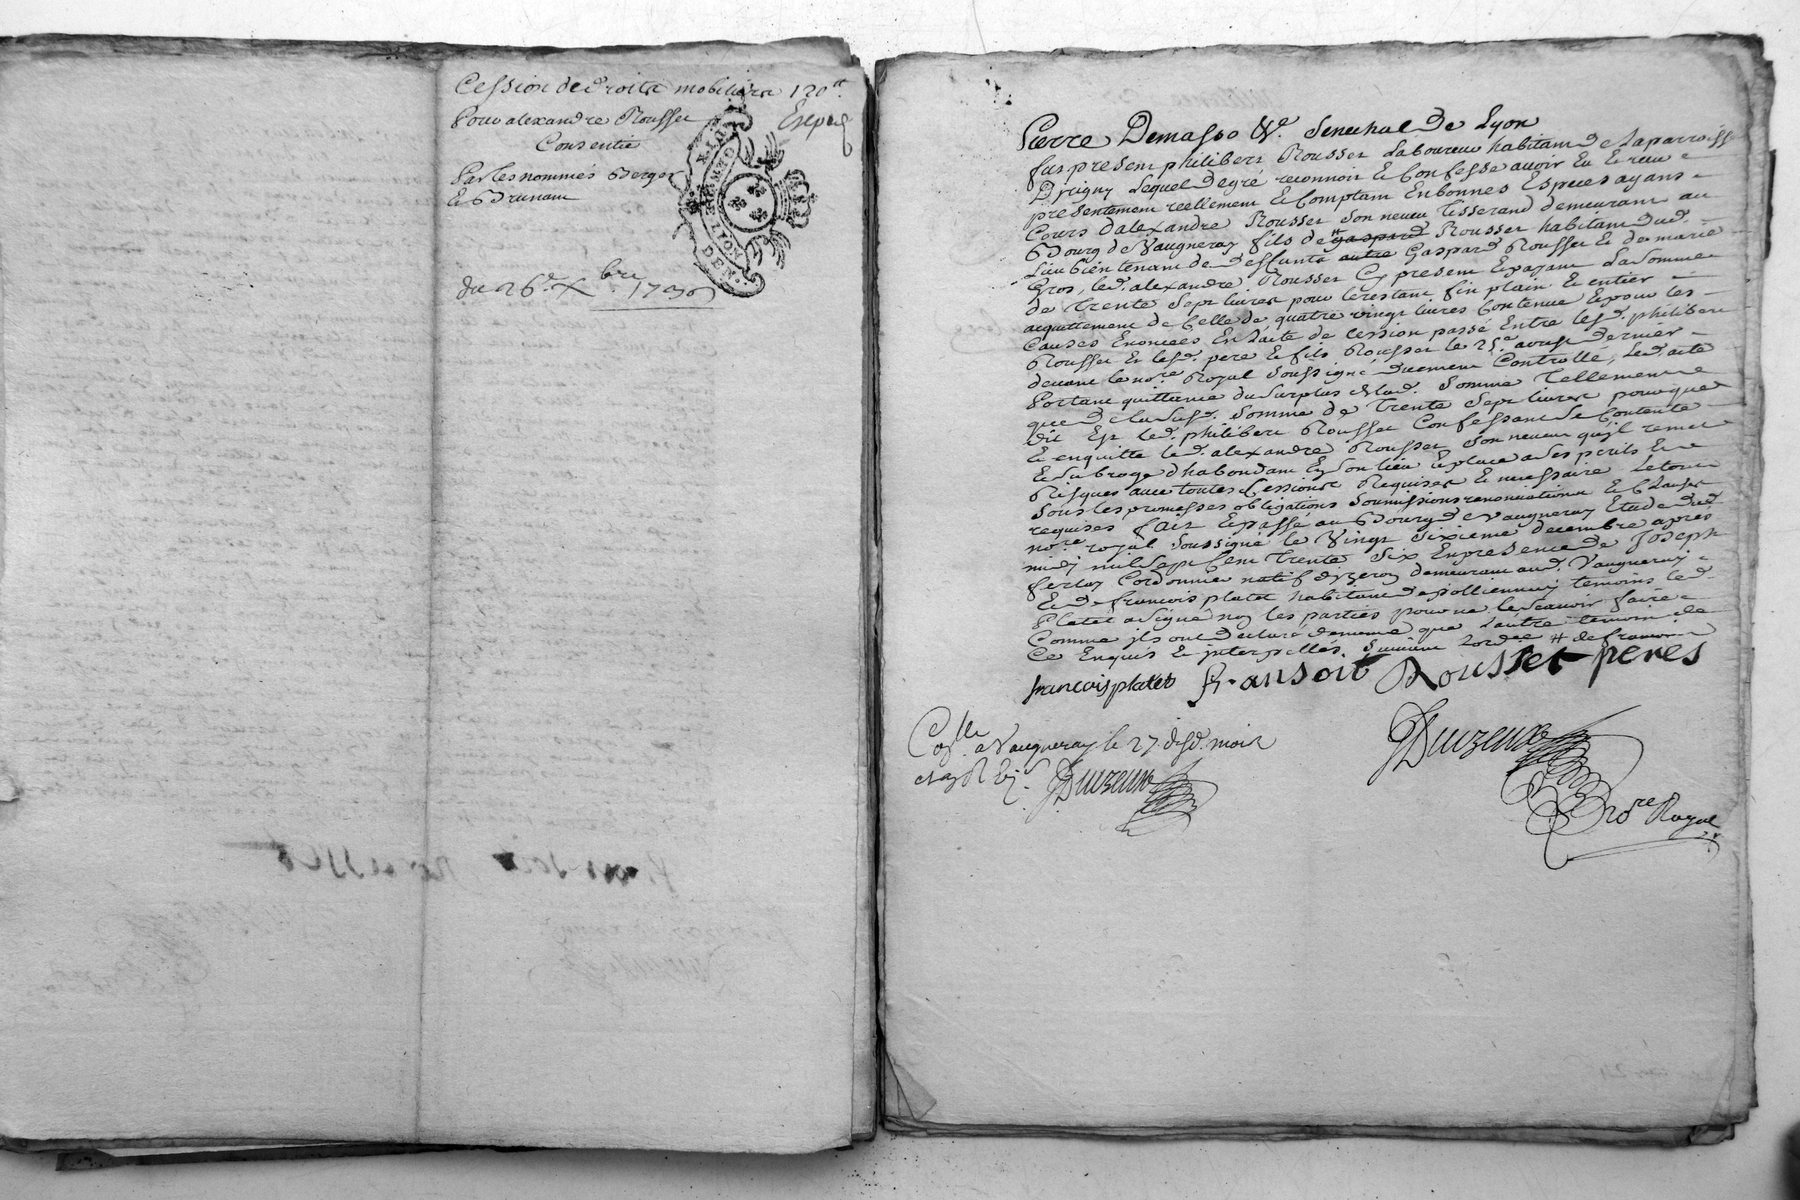 Cession de droits mobiliers 120 tt
Pour alexandre Rousset
Expedié
Consentie
Par les nommés Berger
et Brunam
du 26e Xbre 1736
GEN. DE LYON
Pierre Demasso &c. Senechal de Lyon
fut present philibert Rousset Laboureur habitant de la parroisse
Dyrigny Lequel de gré reconnoit et Confesse avoir Eu et receu
presentement reellement et Comptant En bonnes Especes ayans
Cours d'alexandre Rousset Son neveu Tisserand demeurant au
Bourg de Vaugneray fils de # gaspard Rousset habitant dud.
Lieu bien tenant de deffunts autre Gaspard Rousset et de marie
Gros, led. alexandre Rousset Cy present Et payant La Somme
de Trente Sept livres pour le restant fin plain et entier
acquittement de Celle de quatre vingt livres Contenue Et pour les
Causes Enoncées En L'acte de Cession passé Entre led. philibert
Rousset Et lesd. pere et fils Rousset le 25e aoust dernier
devant le nore Royal Soussigné duement Controllé, led. acte
Portant quittance du Surplus de lad. Somme Tellement
que de la Susd. Somme de Trente Sept livres pour que
dit Est led. philibert Rousset Confessant Se Contente
et en quitte led. alexandre Rousset Son neveu qu'il remet
Et Subroge d'habondant En Son lieu et place a Ses perils et
Risques avec toutes Cessions Requises et necessaire Le tout
Sous les promesses obligations Soumissions renonciations et Clauses
requises fait Et passé au Bourg de Vaugneray Etude dud.
nore royal Soussigné le Vingt Sixieme decembre après
midy mil Sept Cent Trente Six En presence de Joseph
ferlay Cordonnier natif dyzeron demeurant aud. Vaugneray
Et de francois platet habitant de pollionnay temoins led.
Platet a Signé non les parties pour ne le Scavoir faire
Comme ils ont declaré de meme que L'autre temoin de
Ce Enquis et interpellés. Suivant L'ordce # de francois
francois platet fransoit Rousset peres
Collé a Vaugneray le 27 dud. mois
JDuizeux
JDuizeux
nore Royal